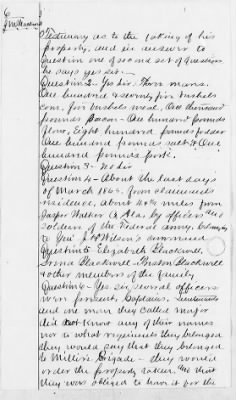 6
Testimony as to the taking of his
property, and in answer to
question one of second set of Question
he says yes sir.
Question 2 - Yes sir. Three mares.
One hundred & seventy five bushels
corn, five bushels meal, One thousand
pounds Bacon - One hundred pounds
flour, Eight hundred pounds fodder
One hundred pounds salt & One
hundred pounds pork.
Question 3 - No sir
Question 4 - About the last days
of March 1865. from claimants
residence, about miles from
Jasper Walker Co Ala, by officers and
soldiers of the Federal army, belonging
to Genl J. H. Wilson's command
Question 5 - Elizabeth Blackwell,
Blackwell - Preston Blackwell
& other members of the family
Question 6 - Yes sir, several officers
were present, Captains, Lieutenants
and one man they called major
did not know any of their names
nor to what regiments they belonged
they would say that they belonged
to Brigade - they would
order the property taken
they were obliged to have it for the